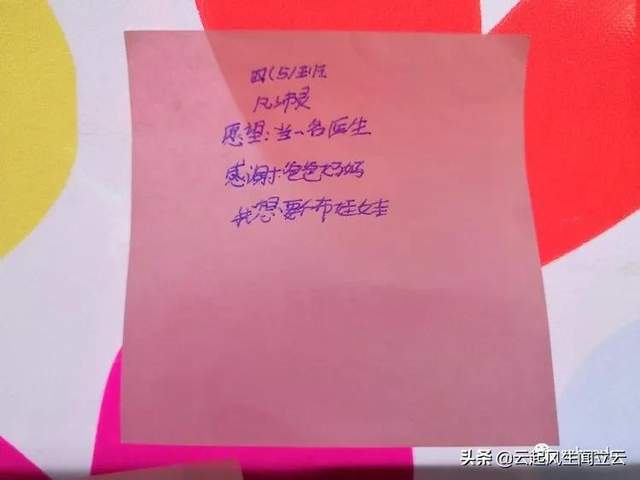 四(5)班
愿望:当一名医生
感谢爸爸妈妈
我想要个布娃娃
头条 @云起风生闻立云